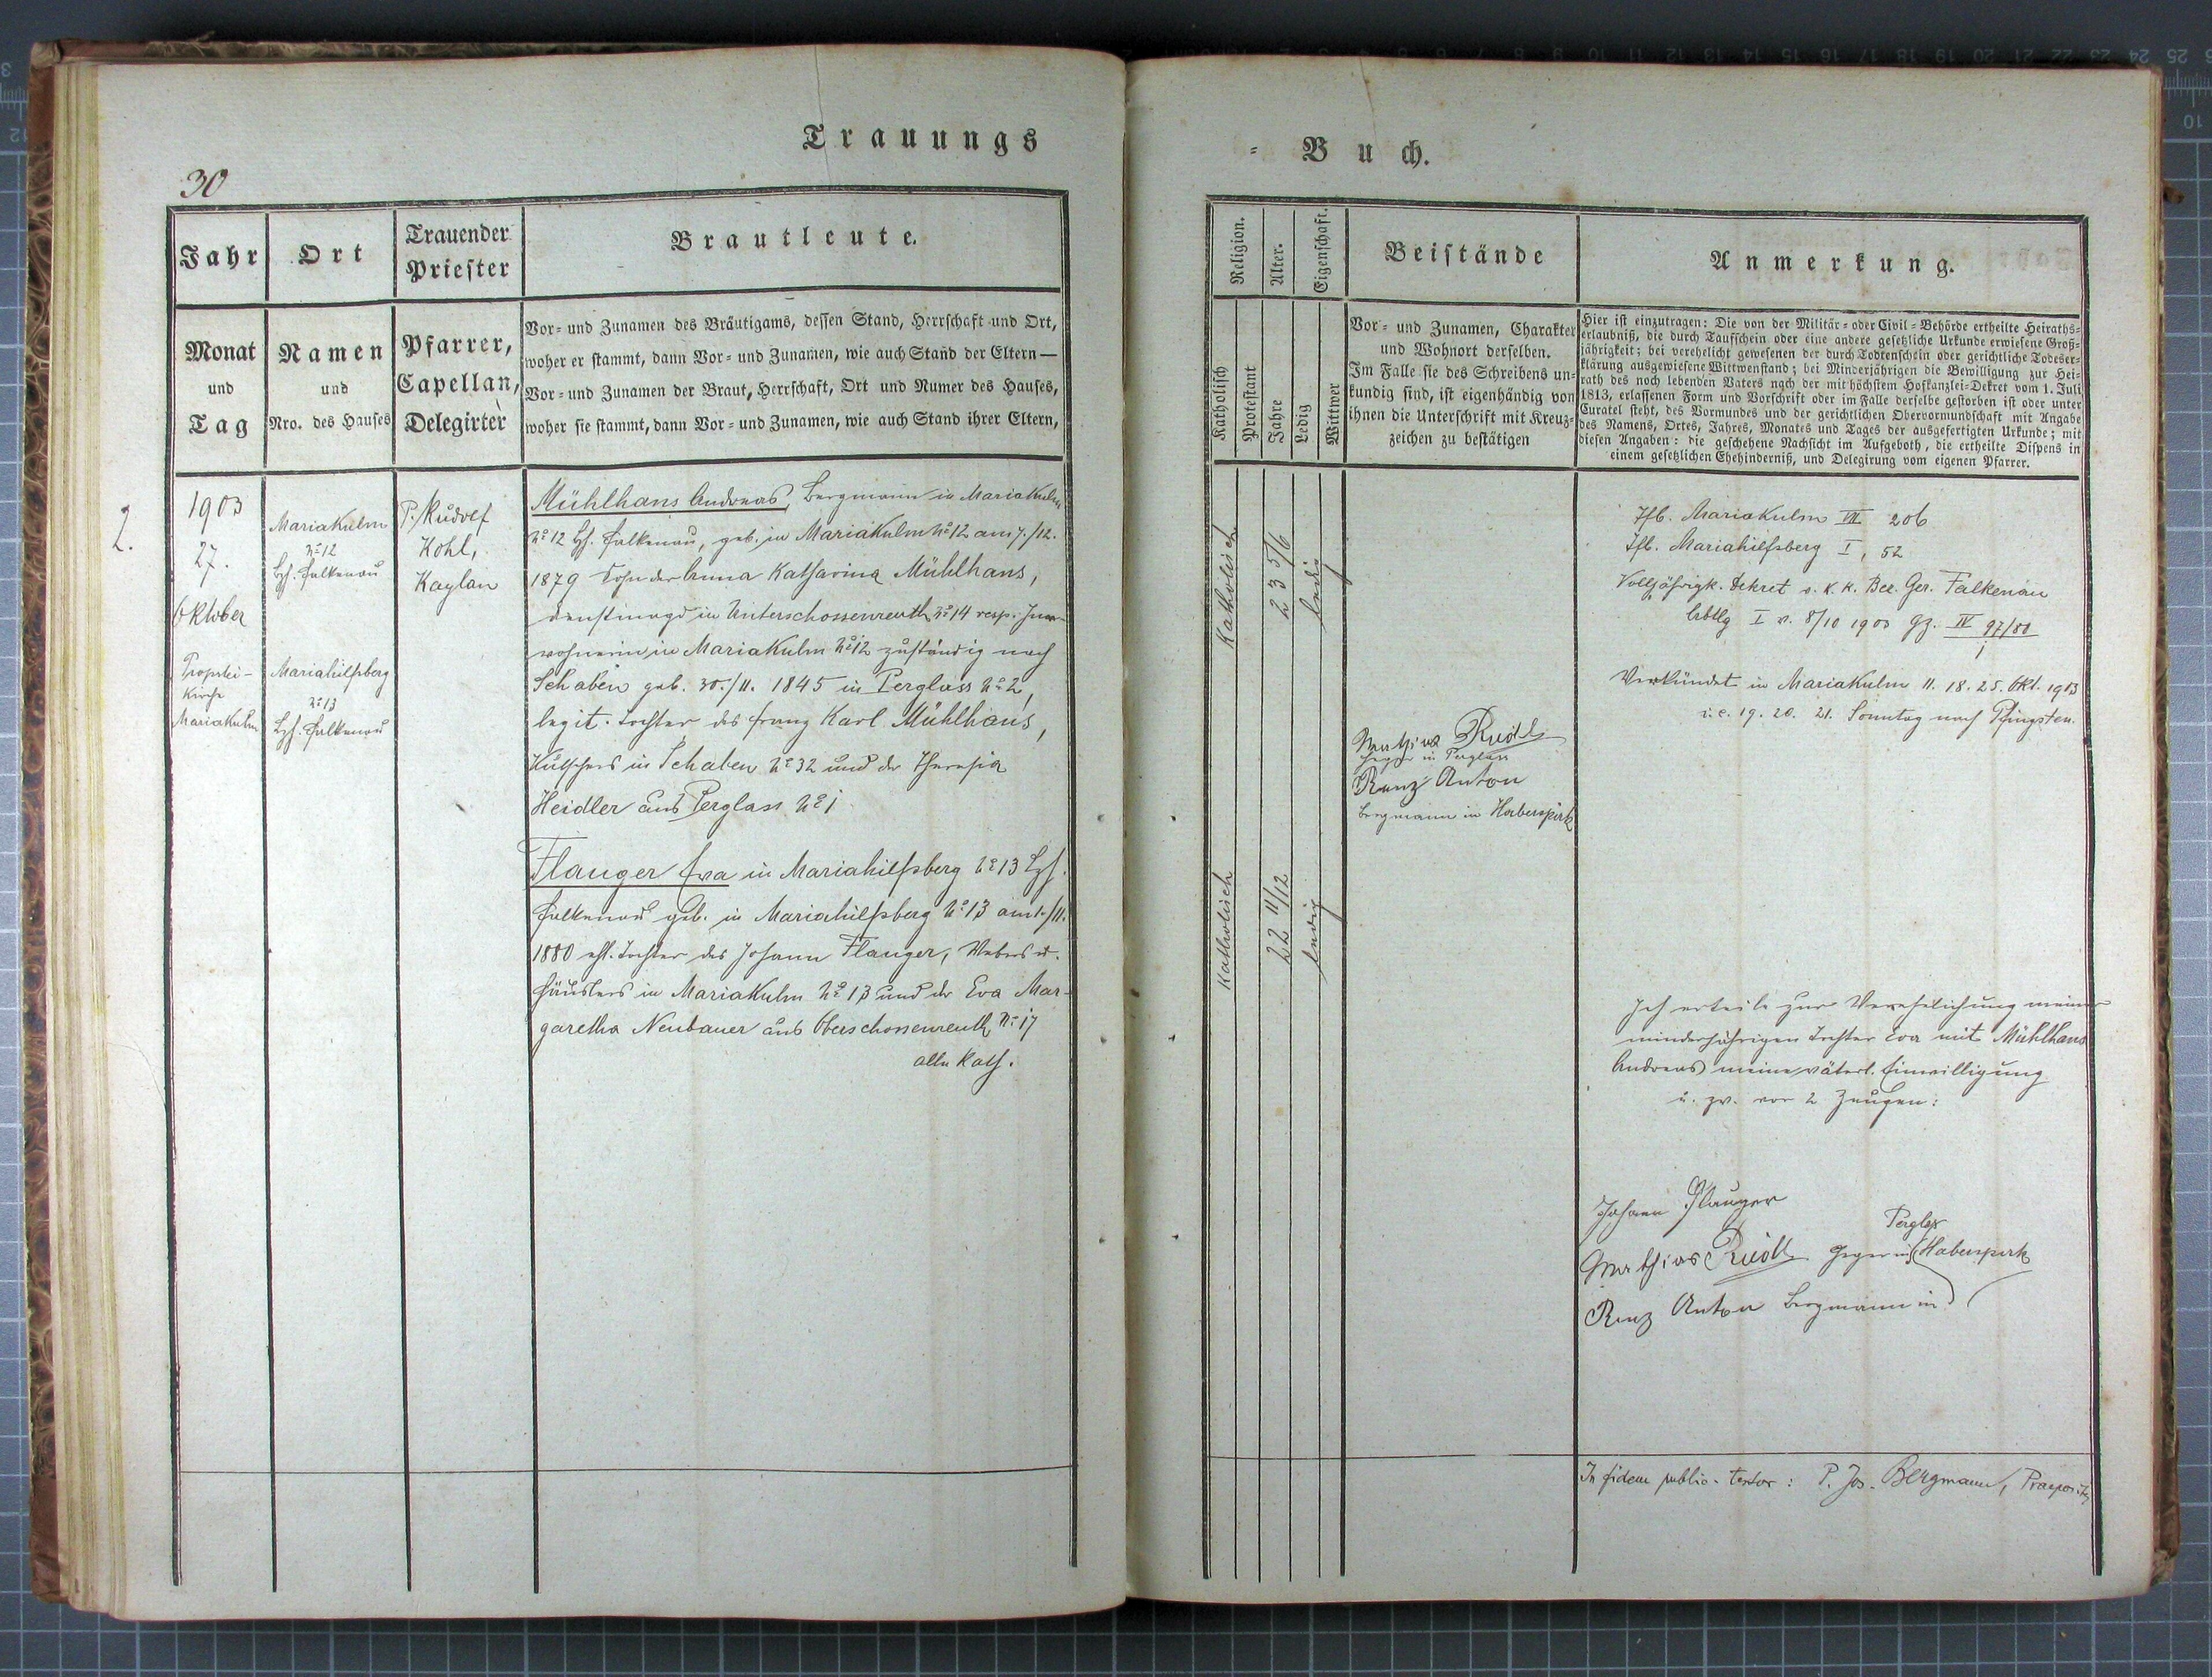 Trauungs
= Buch.
30
Jahr
Ort
Trauender
Priester
Brautleute.
Monat
und
Tag
Namen
und
Nro. des Hauses
Pfarrer,
Capellan,
Delegirter
Vor- und Zunamen des Bräutigams, dessen Stand, Herrschaft und Ort,
woher er stammt, dann Vor- und Zunamen, wie auch Stand der Eltern —
Vor- und Zunamen der Braut, Herrschaft, Ort und Numer des Hauses,
woher sie stammt, dann Vor- und Zunamen, wie auch Stand ihrer Eltern,
2.
1903
27.
Oktober
Propstei-
Kirche
Mariakulm
Mariakulm
No 12
Bzh. Falkenau
Mariahilfsberg
No 13
Bzh. Falkenau
P. Rudolf
Kohl,
Kaplan
Mühlhans Andreas, Bergmann in Mariakulm
No 12 Bzh. Falkenau, geb. in Mariakulm No 12 am 7./12.
1879 Sohn der Anna Katharina Mühlhans,
Dienstmagd in Unterschossenreuth No 14 resp. Inn-
wohnerin in Mariakulm No 12 zuständig nach
Schaben geb. 30./11. 1845 in Perglass No 2,
legit. Tochter des Franz Karl Mühlhans,
Kutschers in Schaben No 32 und der Theresia
Heidler aus Perglass No 1
Flauger Eva in Mariahilfsberg No 13 Bzh.
Falkenau geb. in Mariahilfsberg No 13 am 1./11.
1880 ehl. Tochter des Johann Flauger, Webers u.
Häuslers in Mariakulm No 13 und der Eva Mar-
garetha Neubauer aus Oberschossenreuth No 17
alle kath.
Religion.
Alter.
Eigenschaft.
Beistände
Anmerkung.
Katholisch
Protestant
Jahre
Ledig
Wittwer
Vor- und Zunamen, Charakter
und Wohnort derselben.
Im Falle sie des Schreibens un-
kundig sind, ist eigenhändig von
ihnen die Unterschrift mit Kreuz-
zeichen zu bestätigen
Hier ist einzutragen: Die von der Militär- oder Civil-Behörde ertheilte Heiraths-
erlaubniß, die durch Taufschein oder eine andere gesetzliche Urkunde erwiesene Groß-
jährigkeit; bei verehelicht gewesenen der durch Todtenschein oder gerichtliche Todeser-
klärung ausgewiesene Wittwenstand; bei Minderjährigen die Bewilligung zur Hei-
rath des noch lebenden Vaters nach der mit höchstem Hofkanzlei-Dekret vom 1. Juli
1813, erlassenen Form und Vorschrift oder im Falle derselbe gestorben ist oder unter
Curatel steht, des Vormundes und der gerichtlichen Obervormundschaft mit Angabe
des Namens, Ortes, Jahres, Monates und Tages der ausgefertigten Urkunde; mit
diesen Angaben: die geschehene Nachsicht im Aufgeboth, die ertheilte Dispens in
einem gesetzlichen Ehehinderniß, und Delegirung vom eigenen Pfarrer.
Katholisch
23 5/6
ledig
Katholisch
22 11/12
ledig
Mathias Riedl
Heger in Perglass
Renz Anton
Bergmann in Haberspirk
Tfb. Mariakulm VII 206
Tfb. Mariahilfsberg I, 52
Volljährigk. Dekret v. K. K. Bez. Ger. Falkenau
Abtlg I v. 8/10 1900 Gz. IV 97/80
1
Verkündet in Mariakulm 11. 18. 25. Okt. 1903
i. e. 19. 20. 21. Sonntag nach Pfingsten.
Ich erteile zur Verehelichung meiner
minderjährigen Tochter Eva mit Mühlhans
Andreas meine väterl. Einwilligung
u. zw. vor 2 Zeugen:
Johann Flauger
Perglas
Mathias Riedl Heger in Haberspirk
Renz Anton Bergmann in
In fidem public. testor: P. Jos. Bergmann, Praepositus